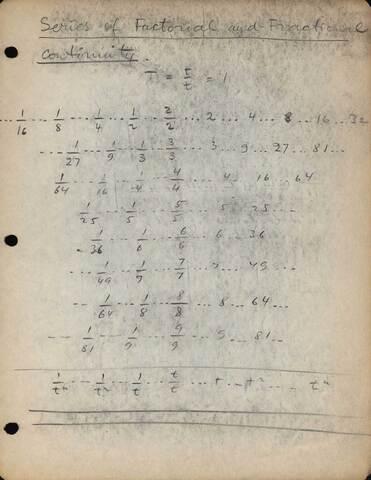 Series of Factorial and Fractional
Continuity.
T = t/t = 1
... 1/16 ... 1/8 ... 1/4 ... 1/2 ... 2/2 ... 2 ... 4 ... 8 ... 16 ... 32
... 1/27 ... 1/9 ... 1/3 ... 3/3 ... 3 ... 9 ... 27 ... 81 ...
1/64 ... 1/16 ... 1/4 ... 4/4 ... 4 ... 16 ... 64
1/25 ... 1/5 ... 5/5 ... 5 ... 25 ...
1/36 ... 1/6 ... 6/6 ... 6 ... 36
... 1/49 ... 1/7 ... 7/7 ... 7 ... 49 ...
... 1/64 ... 1/8 ... 8/8 ... 8 ... 64 ...
... 1/81 ... 1/9 ... 9/9 ... 9 ... 81 ...
1/tⁿ ... 1/t² ... 1/t ... t/t ... t ... t² ... tⁿ